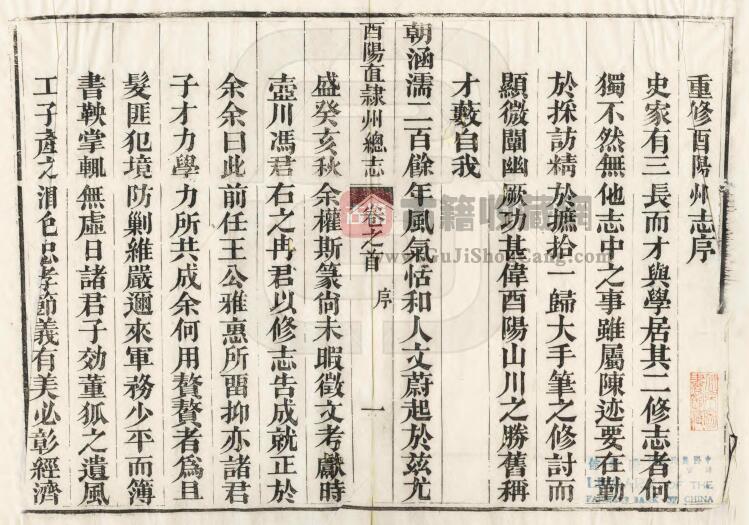 重修酉陽州志序
史家有三長而才與學居其二修志者何
獨不然無他志中之事雖屬陳迹要在勤
於採訪精於摭拾一歸大手筆之修討而
顯微闡幽厥功甚偉酉陽山川之勝舊稱
才藪自我
朝涵濡二百餘年風氣恬和人文蔚起於兹尤
酉陽直隸州總志 卷之首 序 一
盛癸亥秋余權斯篆尙未暇徵文考獻時
壺川馮君右之冉君以修志告成就正於
余余曰此前任王公雅惠所畱抑亦諸君
子才力學力所共成余何用贅贅者爲且
髮匪犯境防剿維嚴邇來軍務少平而簿
書鞅掌輒無虛日諸君子効董狐之遺風
工子產之潤色忠孝節義有美必彰經濟
古籍收藏網
www.GuJiShouCang.com
OF THE
BANK OF CHINA